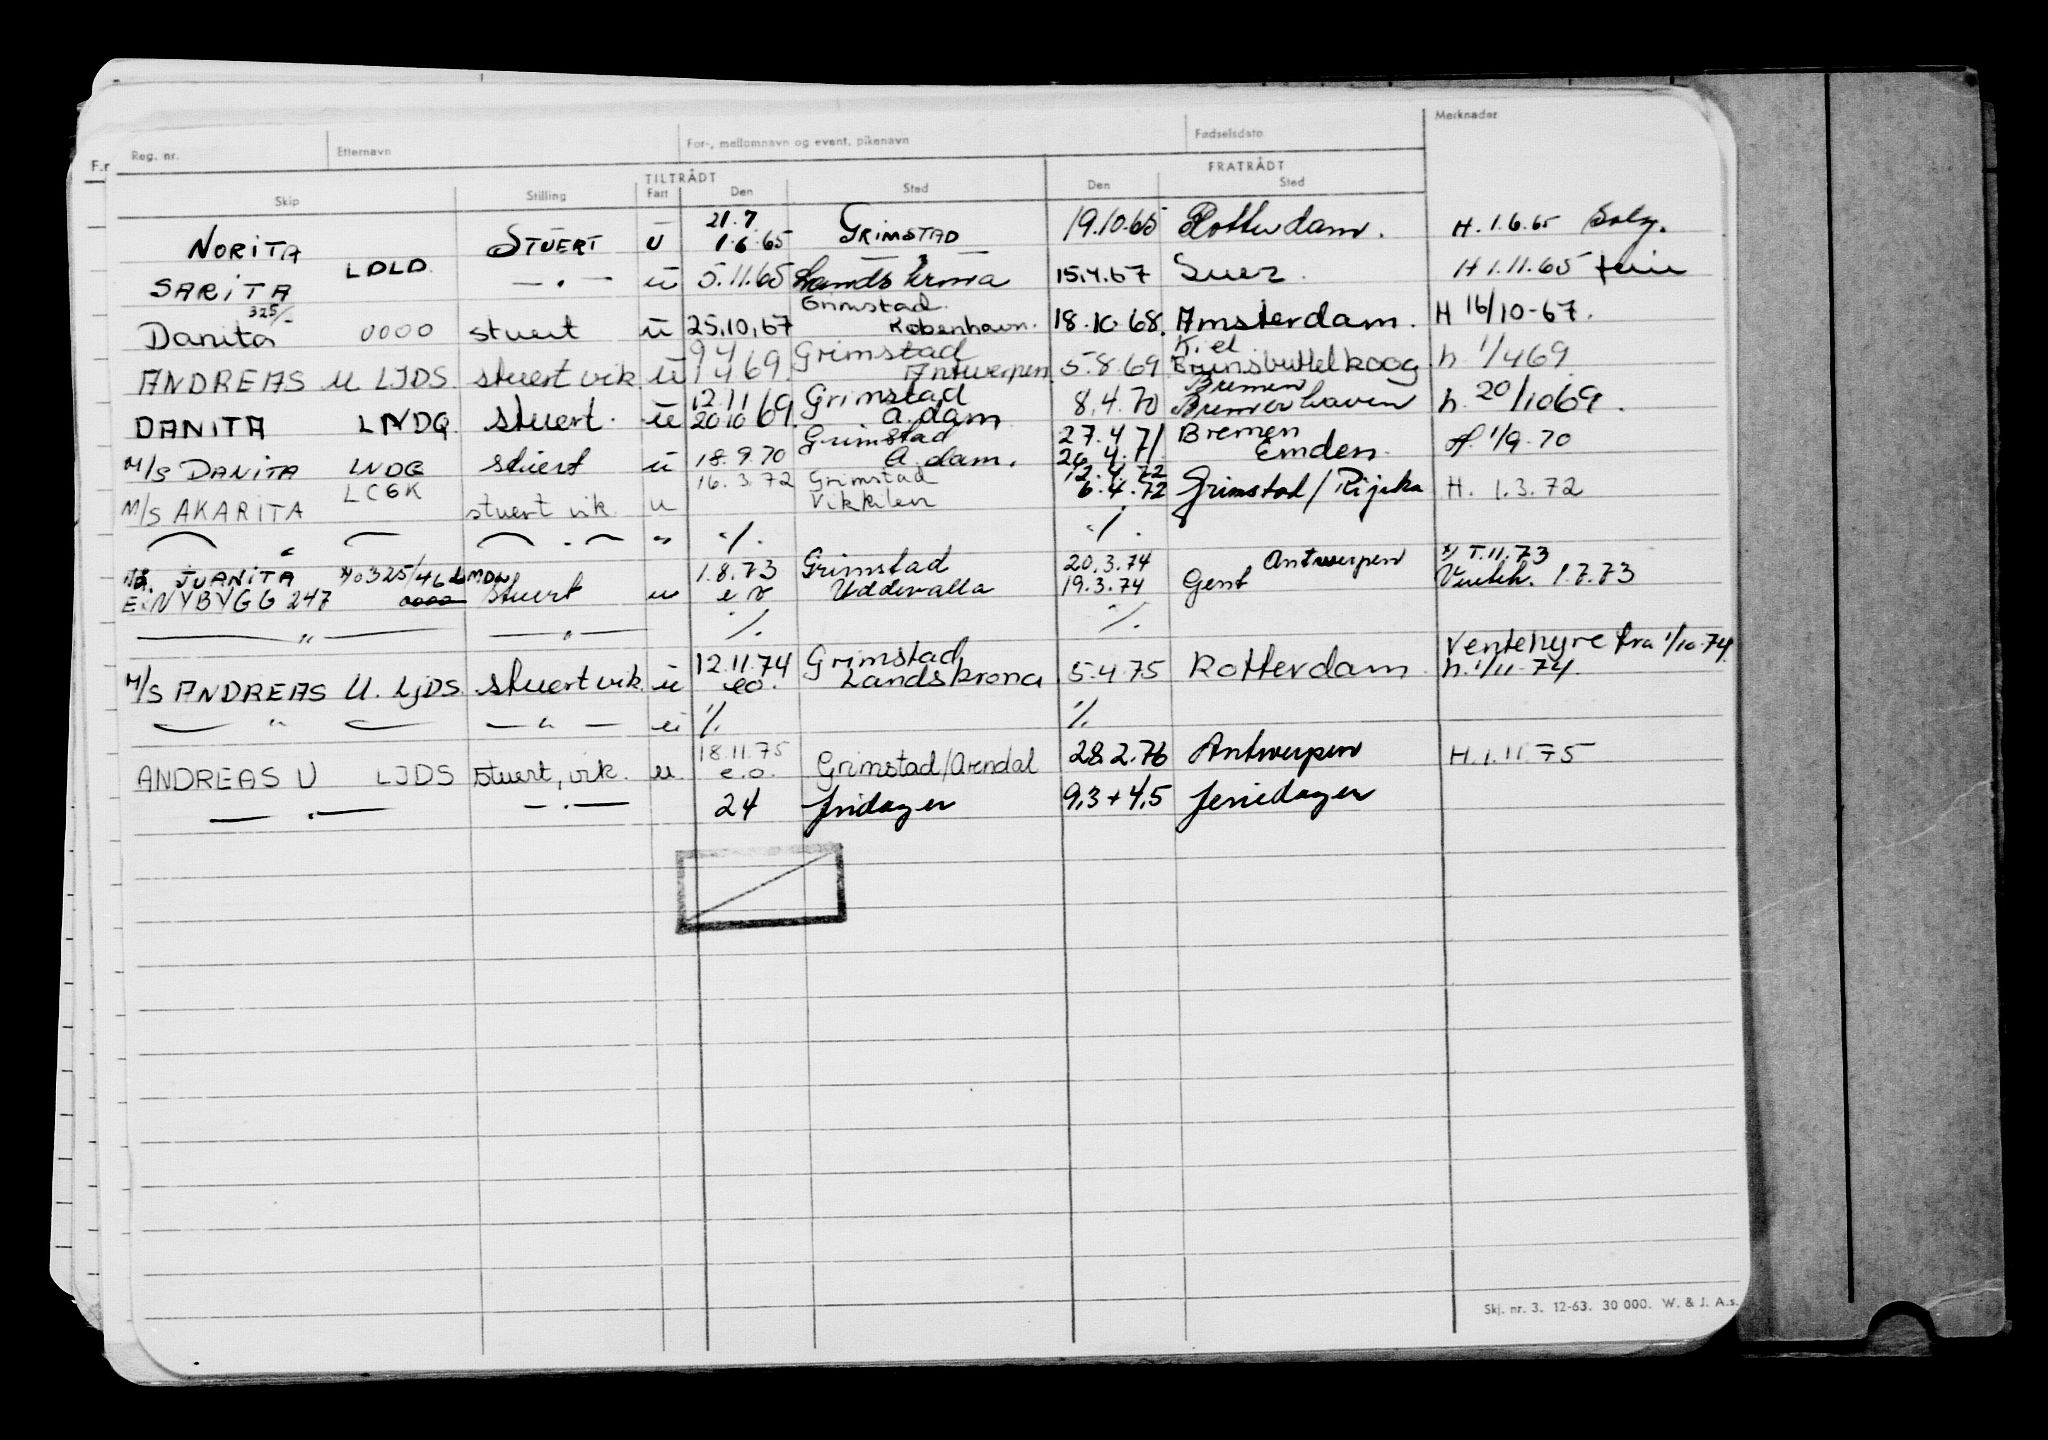 Reg. nr. Etternavn For-, mellomnavn og event. pikenavn Fødselsdato Merknader
TILTRÅDT FRATRÅDT
Skip Stilling Fart Den Sted Den Sted
21.7
NORITA STUERT U 1.6.65 GRIMSTAD 19.10.65 Rotterdam. H. 1.6.65
SARITA LDLD — . — u 5.11.65 Landskrona 15.4.67 Suez. H 1.11.65 ferie
325/ Grimstad
Danita 0000 stuert u 25.10.67 København. 18.10.68. Amsterdam. H 16/10-67.
9 4 Grimstad Kiel
ANDREAS U LJDS stuert vik u 1 4 69. Antwerpen. 5.8.69 Brunsbuttelkoog h. 1/469
12.11 Grimstad Bremen
DANITA LNDQ. stuert. u 20.10 69. A.dam 8.4.70 Bremerhaven h. 20/1069.
Grimstad 27.4.71 Bremen
M/S DANITA LNDQ stuert u 18.9.70 A.dam. 26.4.71. Emden. H. 1/9.70
LCGK 16.3.72 Grimstad 12.4.72
M/S AKARITA stuert vik. u Vikkilen 6.4.72 Grimstad/Rijeka H. 1.3.72
" — . — " ./. ./.
JUANITA 325/46 LMDW 1.8.73 Grimstad 20.3.74 Antwerpen 1.11.73
NYBYGG 247 0000 stuert u e.o Uddevalla 19.3.74 Gent Venteh. 1.7.73
— " — — " — ./. ./.
12.11.74 Grimstad Ventehyre fra 1/10-74
M/S ANDREAS U. LJDS stuert vik. u eo. Landskrona 5.4.75 Rotterdam h. 1/11-74.
— " — — " — u ./. ./.
18.11.75
ANDREAS U LJDS stuert, vik. u. e.o. Grimstad/Arendal 28.2.76 Antwerpen H.1.11.75
— . — — . — 24 fridager 9,3 + 4,5 feriedager
Skj. nr. 3. 12-63. 30 000. W. & J. A.s.